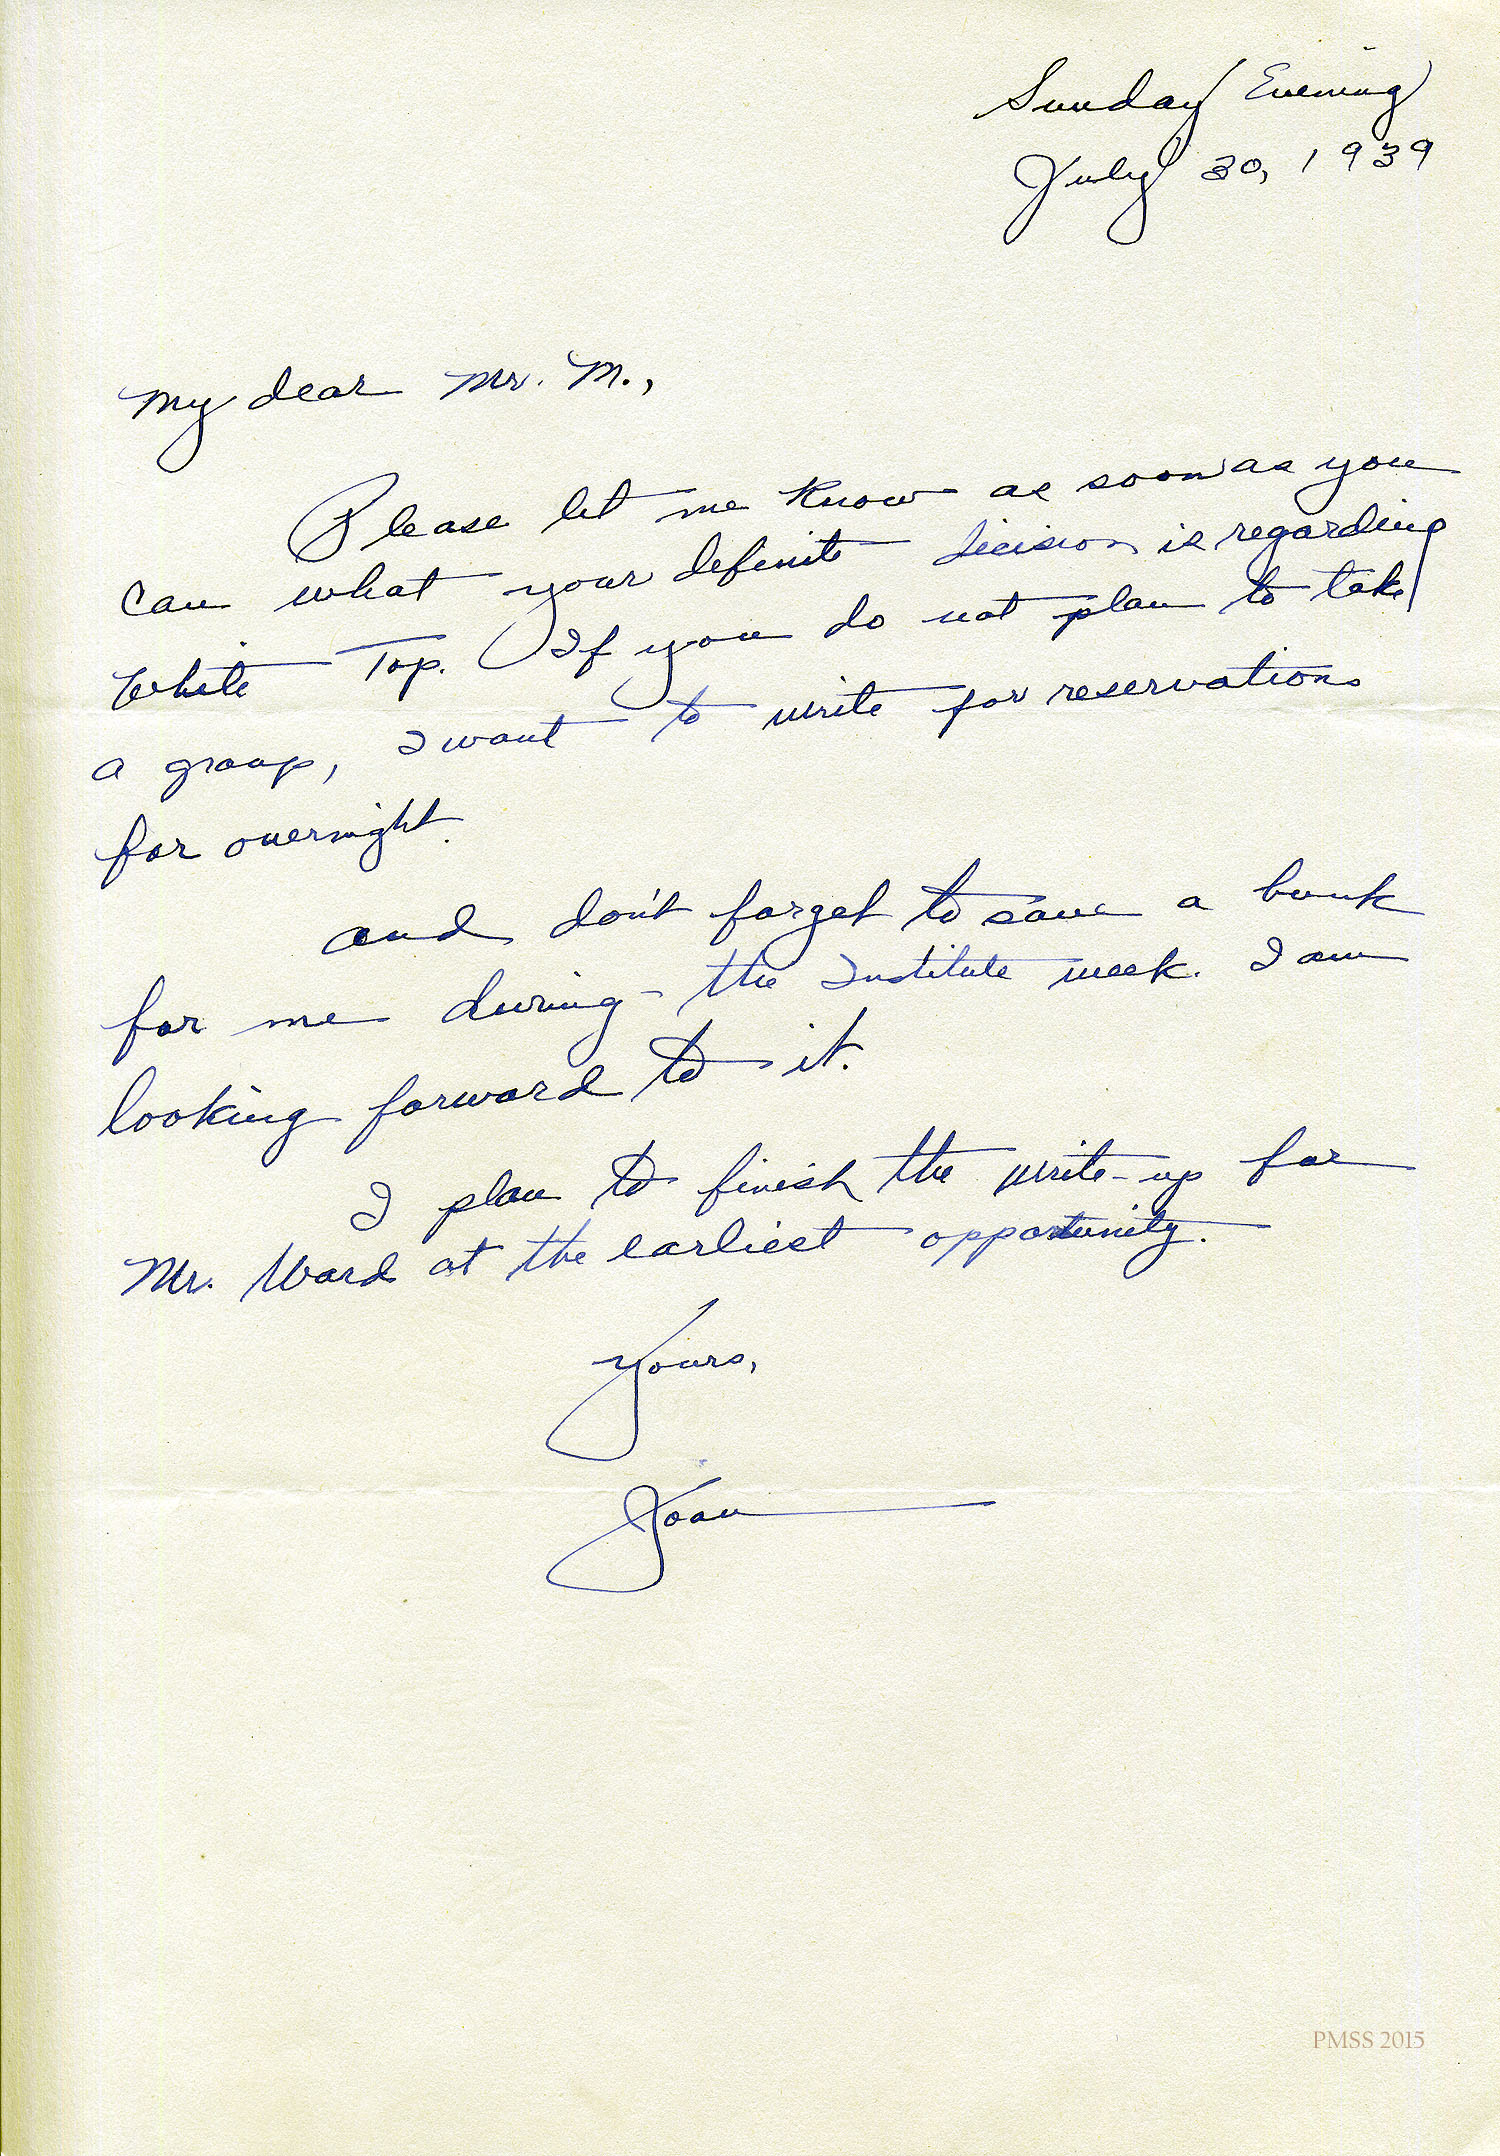 Sunday Evening
July 30, 1939
My dear Mr. M.,
Please let me know as soon as you
can what your definite decision is regarding
White Top. If you do not plan to take
a group, I want to write for reservations
for overnight.
And don't forget to save a bunk
for me during the Institute week. I am
looking forward to it.
I plan to finish the write-up for
Mr. Ward at the earliest opportunity.
Yours,
Joan
PMSS 2015